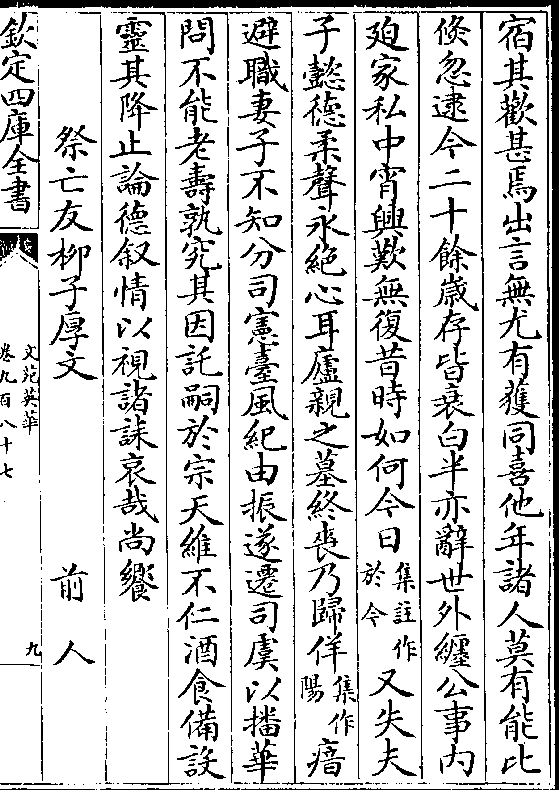 宿其歡甚焉出言無尤有獲同喜他年諸人莫有能比
倐忽逮今二十餘歲存皆衰白半亦辭世外纒公事内
廹家私中宵興歎無復昔時如何今日集註作於今又失夫
子懿德柔聲永絕心耳廬親之墓終喪乃歸佯集作陽瘖
避職妻子不知分司憲臺風紀由振遂遷司虞以播華
問不能老壽孰究其因託嗣於宗天維不仁酒食備設
靈其降止論德叙情以視諸誄哀哉尚饗
祭亡友柳子厚文 前人
欽定四庫全書
文苑英華
卷九百八十七
九